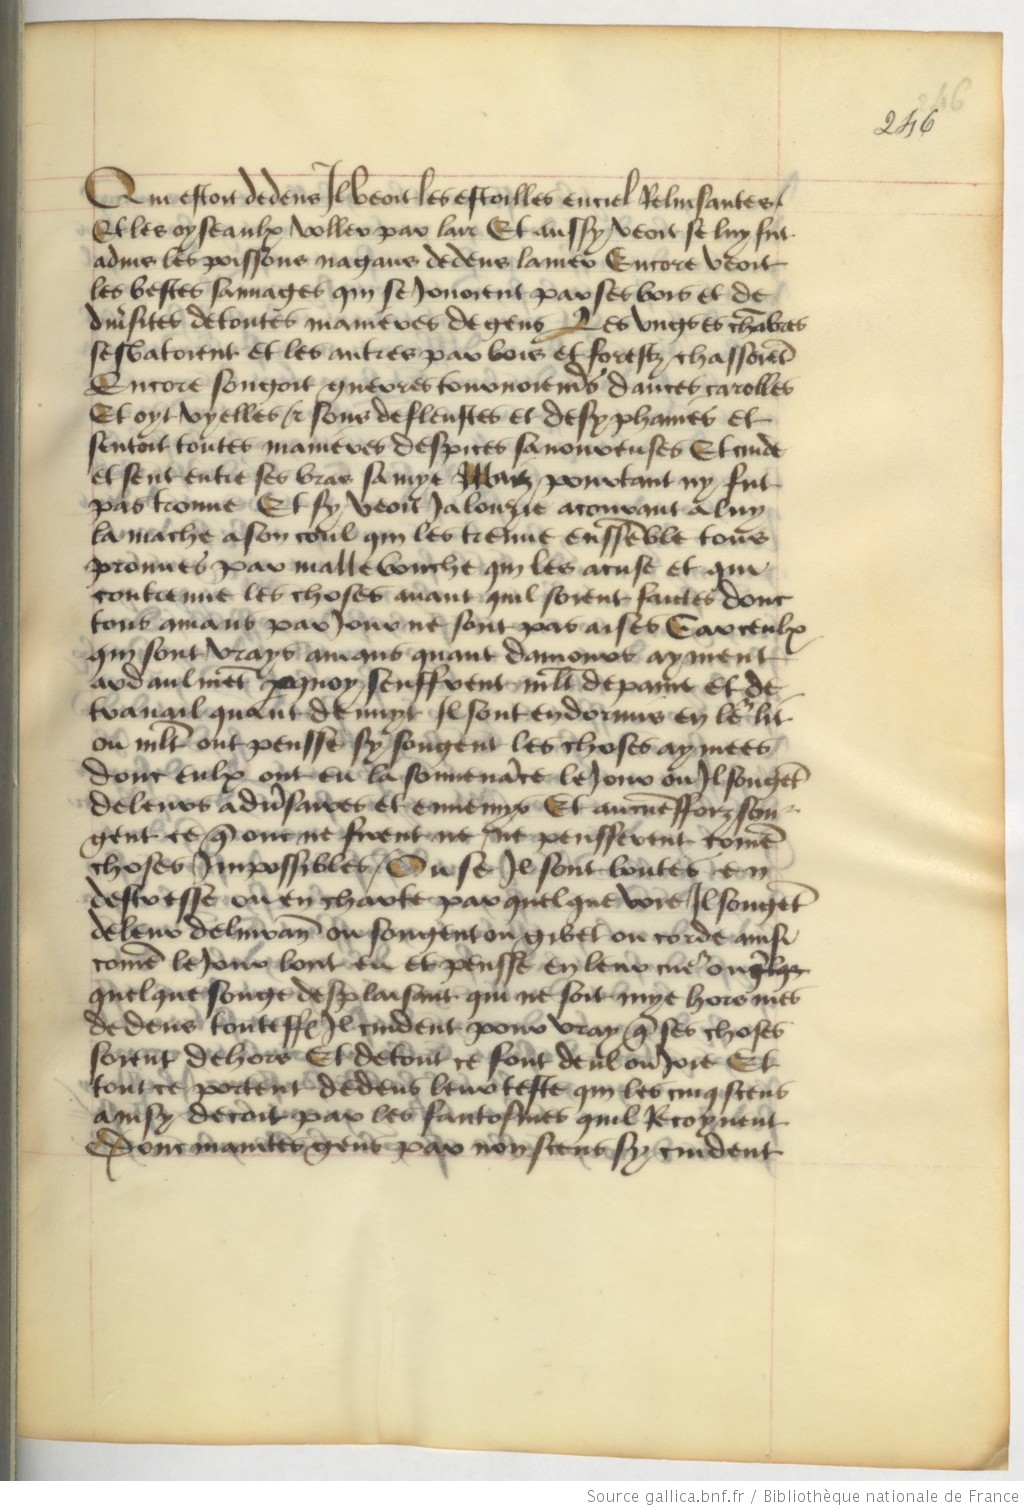 246
246
Qui estoit dedens Il veoit les estoilles en ciel Reluisantes
Et les oyseaulx voller par lair Et aussy veoit se luy fut
aduis les poissons nagans dedens la mer Encore veoit
les bestes sauuages qui se Jouoient par ses bois et de
diu'sites de toutes manieres de gens Les vngs es cha͞bres
sesbatoient et les autres par bois et forestz chassoie͞t
Encore songoit guerres tournoiem͞s dances carolles
Et oyt vyelles et sons de fleustes et de syphanies et
sentoit toutes manieres despices sauoureuses Et cuide
et sent entre ses bras samye Maiz pourtant ny fut
pas trouue Et sy veoit Jalouzie acourant a luy
la mache a son coul qui les treuue ensse͞ble tous
prouues par malle bouche qui les acuse et qui
contreuue les choses auant quil soient faictes donc
tous amans par Jour ne sont pas aises Car ceulx
qui sont vrays amans quant damours ayment
ardaulme͞t pquoy seuffrent ml͞t de paine et de
trauail quant de nuyt Il sont endormis en le' lit
ou ml͞t ont pensse sy songent les choses aymees
donc eulx ont eu la souuena͞ce le Jour ou Il songe͞t
de leurs adu'saires et ennemys Et aucuneffoiz son
gent ce q͞ onc ne furent ne ne pensserent com͞e
choses Impossibles / Ou se Il sont boutes en
destresse ou en chartre par quelque voie Il songe͞t
de leur deliuran͞ ou songent ou gibet ou corde ainsi
com͞e le Jour lont eu et pensse en leur cue' ou
quelque songe desplaisant qui ne soit mye hors mes
dedens touteffoiz Il cuident pour vray q͞ ses choses
soient dehors Et de tout ce font deul ou Joie Et
tout ce portent dedens leur teste qui les cinq scens
ainsy decoit par les fantosmes quil Recoyuent
Donc maintes gens par non scens sy cuident
Source gallica.bnf.fr / Bibliothèque nationale de France